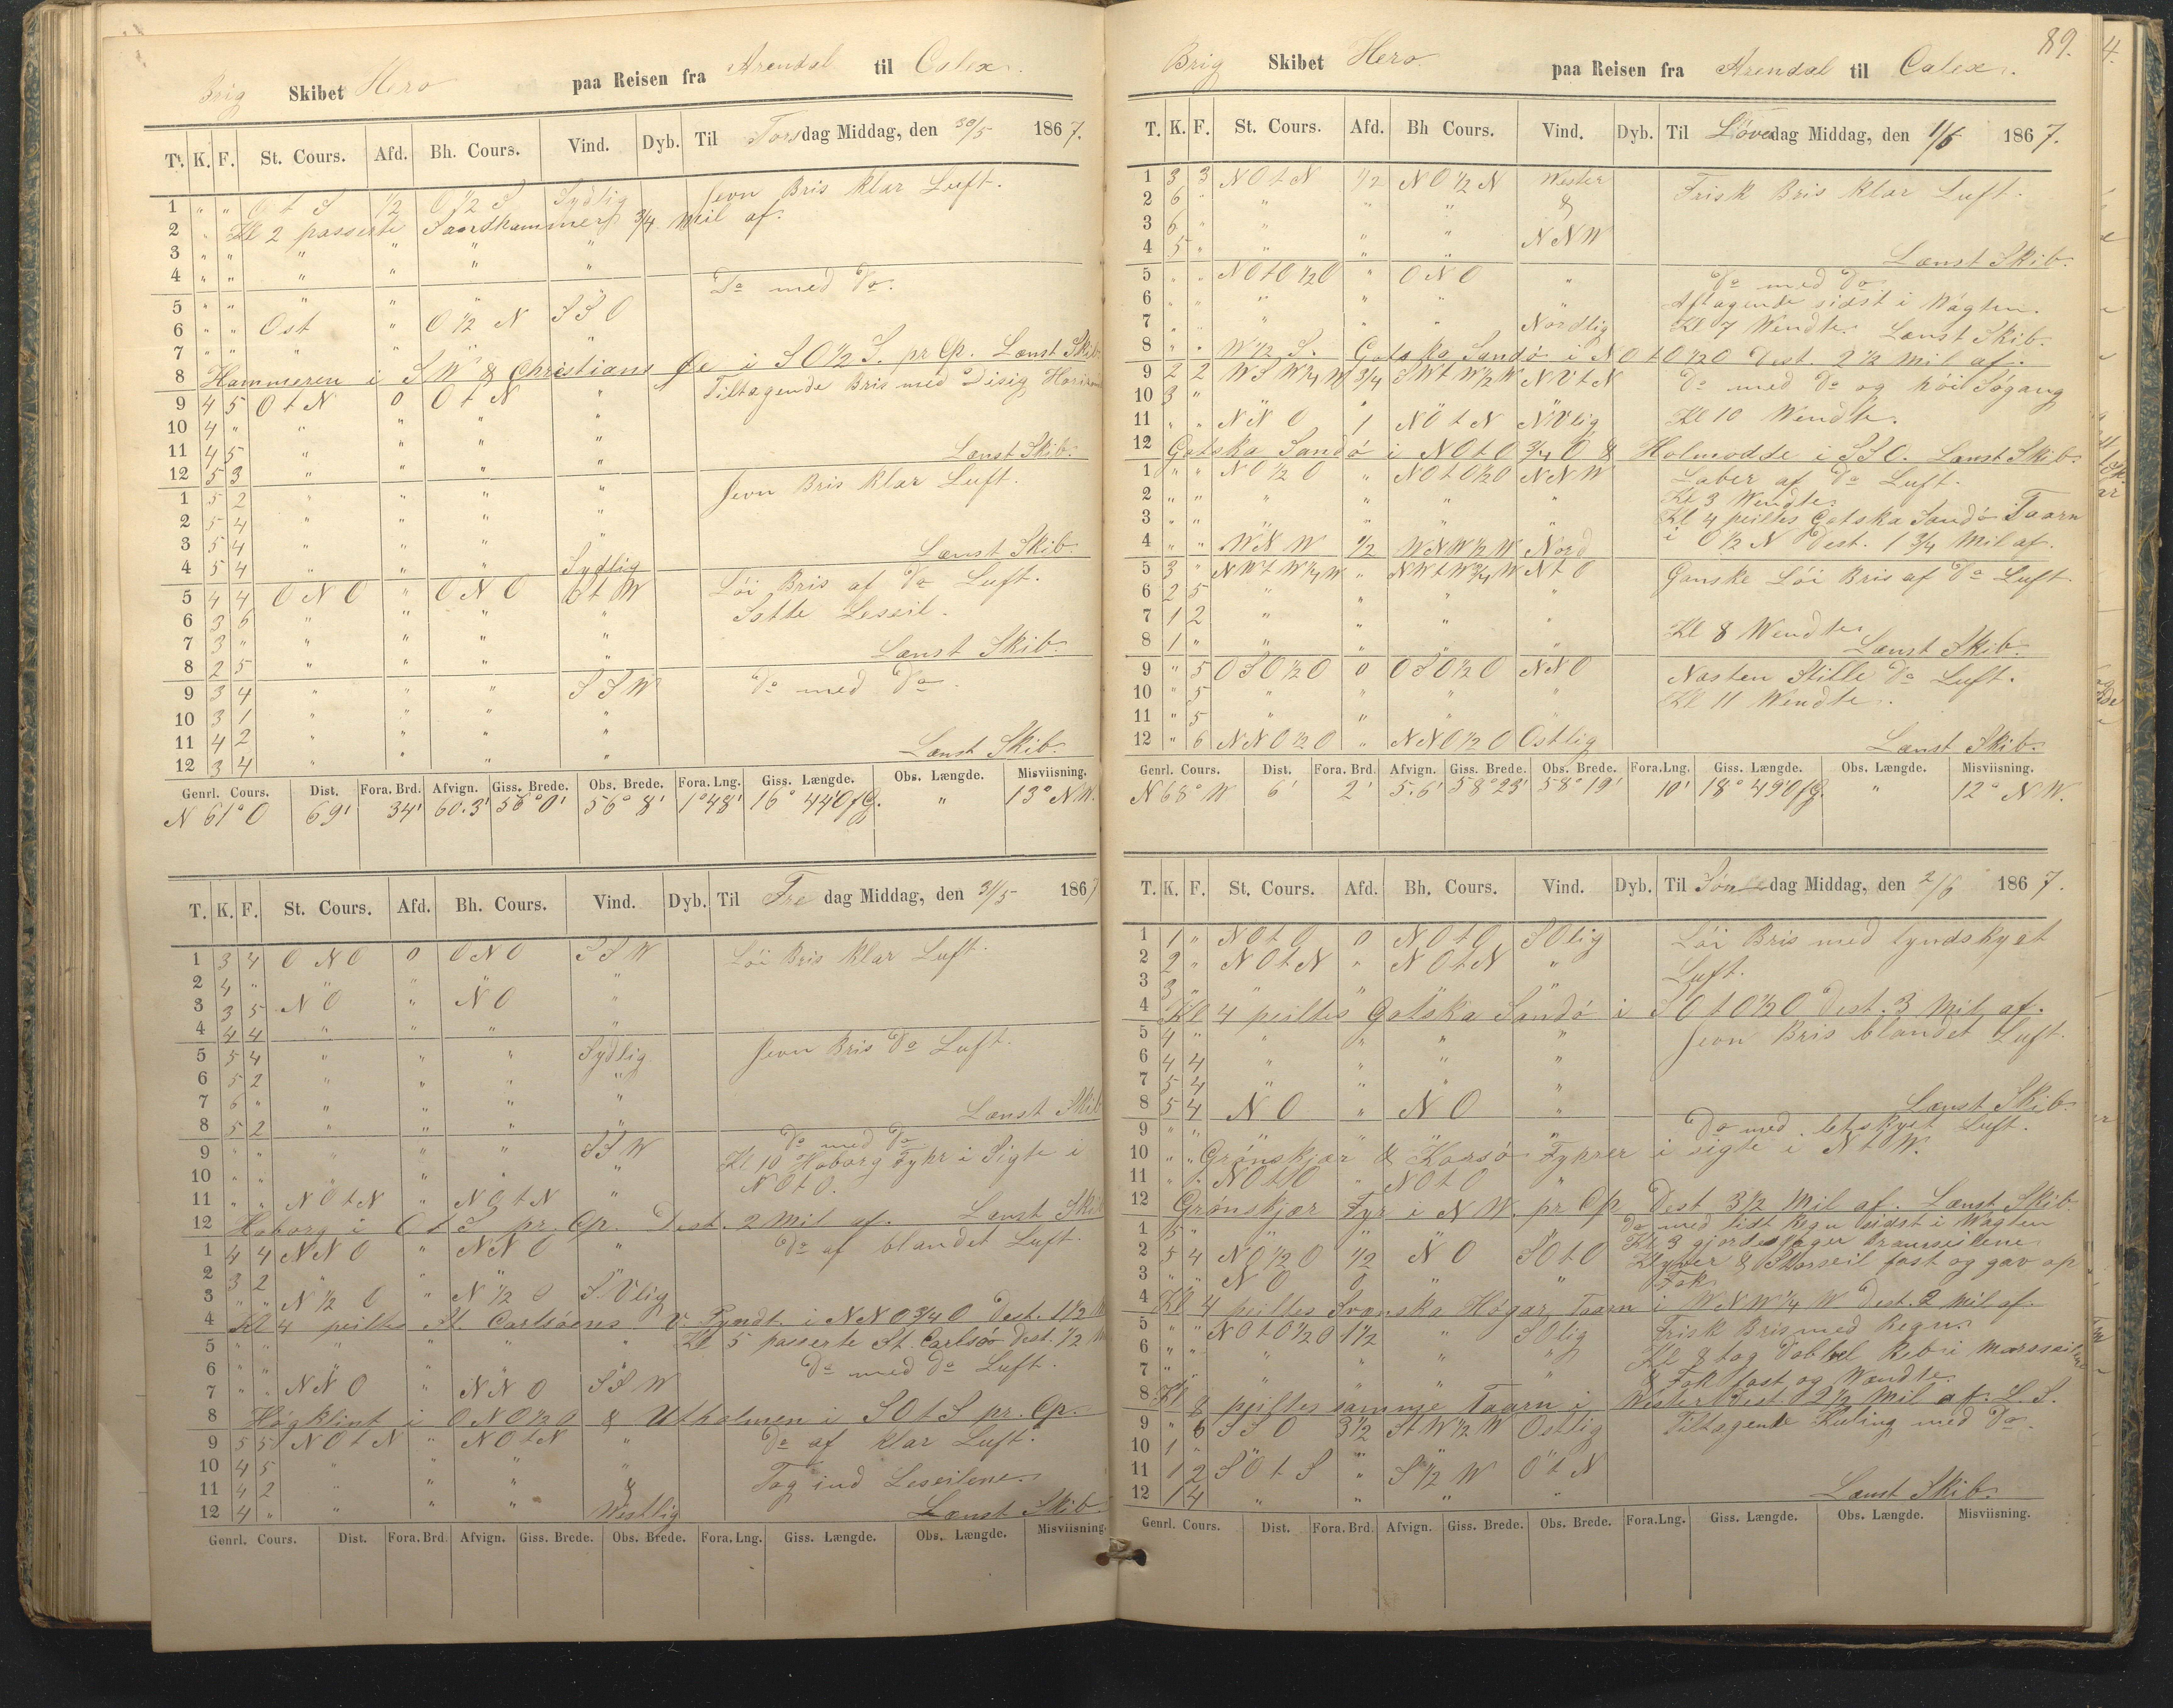 Brig Skibet Hero paa Reisen fra Arendal til Calex.
T. K. F. St. Cours. Afd. Bh. Cours. Vind. Dyb. Til Torsdag Middag, den 30/5 1867.
1 " " O t S 1/2 O 1/2 S Sydlig Jevn Bris klar Luft.
2 " Kl 2 passerte Sandhammer 3/4 Mil af.
3 " " " " " "
4 " " " " " "
5 " " " " " " Do med Do.
6 " " Ost " O 1/2 N SSO
7 " " " " " "
8 Hammeren i SW & Christians Øe i SO 1/2 S. pr Cp. Lænst Skib
9 4 5 O t N 0 O t N " Tiltagende Bris med Disig Horizon
10 4 " " " " "
11 4 5 " " " " Lænst Skib.
12 5 3 " " " "
1 5 2 " " " " Jevn Bris klar Luft.
2 5 4 " " " "
3 5 4 " " " " Lænst Skib.
4 5 4 " " " Sydlig
5 4 4 O N O " O N O S t W Löi Bris af Do Luft.
6 3 6 " " " " Satte Leseil.
7 3 " " " " " Lænst Skib.
8 2 5 " " " "
9 3 4 " " " SSW Do med Do.
10 3 1 " " " "
11 4 2 " " " " Lænst Skib.
12 3 4 " " " "
Genrl. Cours. Dist. Fora. Brd. Afvign. Giss. Brede. Obs. Brede. Fora. Lng. Giss. Længde. Obs. Længde. Misviisning.
N 61° O 69' 34' 60.3' 56° 0' 56° 8' 1° 48' 16° 44' O f G. " 13° NW.
T. K. F. St. Cours. Afd. Bh. Cours. Vind. Dyb. Til Fredag Middag, den 31/5 1867
1 3 4 O N O 0 O N O SSW Löi Bris klar Luft.
2 4 " " " " "
3 3 5 N O " N O "
4 4 4 " " " "
5 5 4 " " " Sydlig Jevn Bris Do Luft.
6 5 2 " " " "
7 6 " " " " " Lænst Skib
8 5 2 " " " "
9 " " " " " SSW Do med Do
10 " " " " " " Kl 10 Hoborg Fyhr i Sigte i
11 " " N O t N " N O t N " N O t O.
12 Hoborg i O t S pr. Cp. Dest. 2 Mil af. Lænst Skib
1 4 4 N N O " N N O " Do af blandet Luft.
2 3 2 " " " "
3 " " N 1/2 O " N 1/2 O S.Vlig
4 Kl 4 peiltes St. Carlsöens V. Pyndt. i NNO 3/4 O Dest. 1 1/2 M
5 " " " " " " Kl 5 passerte St. Carlsö Dest. 1/2 M
6 " " " " " " Do med Do Luft.
7 " " N N O " N N O SSW
8 Högklint i ONO 1/2 O & Utholmen i SO t S pr. Cp.
9 5 5 N O t N " N O t N " Do af klar Luft.
10 4 5 " " " "
11 4 2 " " " & Tog ind Leseilene.
12 4 " " " " Westlig Lænst Skib.
Genrl. Cours. Dist. Fora. Brd. Afvign. Giss. Brede. Obs. Brede. Fora. Lng. Giss. Længde. Obs. Længde. Misviisning.
89.
Brig Skibet Hero paa Reisen fra Arendal til Calex.
T. K. F. St. Cours. Afd. Bh Cours. Vind. Dyb. Til Löverdag Middag, den 1/6 1867.
1 3 3 N O t N 1/2 N O 1/2 N Wester Frisk Bris klar Luft.
2 6 " " " " &
3 6 " " " " NNW
4 5 " " " " Lænst Skib.
5 " " N O t O 1/2 O " O N O " Do med Do
6 " " " " " Aftagende sidst i Vagten.
7 " " " " " Nordlig Kl 7 Wendte. Lænst Skib.
8 " " W 1/2 S. Gotska Sandö i N O t O 1/2 O Dest. 2 1/2 Mil af.
9 2 2 W S W 1/4 W 3/4 S W t W 1/2 W N V t N Do med Do og höi Sögang
10 3 " " " " " Kl 10 Wendte.
11 " " N N O 1 N O t N NVlig
12 Gotska Sandö i N O t O 3/4 O & Holmodde i SSO. Lænst Skib.
1 " " N O 1/2 O " N O t O 1/2 O NNW Laber af Do Luft.
2 " " " " " " Kl 3 Wendte
3 " " " " " " Kl 4 peiltes Gotska Sandö Taarn
4 " " W N W 1/2 W N W 1/2 W Nord i O 1/2 N Dest. 1 3/4 Mil af.
5 3 " N W t W 1/4 W " N W t W 3/4 W N t O Ganske Löi Bris af Do Luft
6 2 5 " " " "
7 1 2 " " " "
8 1 " " " " Kl 8 Wendte Lænst Skib.
9 " 5 O S O 1/2 O 0 O S O 1/2 O NNO Næsten Stille Do Luft.
10 " 5 " " " " Kl 11 Wendte.
11 " 5 " " " "
12 " 6 N N O 1/2 O " N N O 1/2 O Ostlig Lænst Skib.
Genrl. Cours. Dist. Fora. Brd Afvign. Giss. Brede. Obs. Brede. Fora. Lng. Giss. Længde. Obs. Længde. Misviisning.
N 68° W 6' 2' 5.6' 58° 23' 58° 19' 10' 18° 49' O f G. " 12° NW.
T. K. F. St. Cours. Afd. Bh. Cours. Vind. Dyb. Til Söndag Middag, den 2/6 1867.
1 1 " N O t O 0 N O t O SOlig Löi Bris med tyndskyet
2 2 " N O t N " N O t N " Luft.
3 3 " " " " "
4 Kl 4 peiltes Gotska Sandö i S O t O 1/2 O Dest. 3 Mil af.
5 4 " " " " " Jevn Bris blandet Luft.
6 4 4 " " " "
7 5 4 " " " "
8 5 4 N O " N O " Lænst Skib.
9 " " " " " " Do med letskyet Luft.
10 " " Grönskjær & Korsö Fyhrer i sigte i N t W.
11 " " N O t O " N O t O "
12 Grönskjær Fyr i N W. pr Cp Dest 3 1/2 Mil af. Lænst Skib
1 5 " " " " " Do med lidt Regn sidst i Vagten
2 5 4 N O 1/2 O 1/2 N O S O t O Kl 3 gjordes Bramseilene
3 " " N O 0 " " Klyver & Storseil fast og gav op Fok
4 Kl 4 peiltes Svenska Högar Taarn i W N W 1/4 W Dest. 2 Mil af.
5 " " N O t O 1/2 O 1 1/2 " SOlig Frisk Bris med Regn
6 " " " " " " Kl 8 tog Dobbel Reb i Marsseilene
7 " " " " " & Fok fast og Wendte.
8 Kl 8 peiltes samme Taarn i Wester Dest. 2 1/2 Mil af. L. S.
9 " 6 S S O 3 1/2 S t W 1/2 W Ostlig Tiltagende Kuling med Do.
10 1 " " " " "
11 1 2 S O t S " S 1/2 W O t N
12 1 4 " " " " Lænst Skib.
Genrl. Cours. Dist. Fora. Brd. Afvign. Giss. Brede. Obs. Brede. Fora. Lng. Giss. Længde. Obs. Længde. Misviisning.